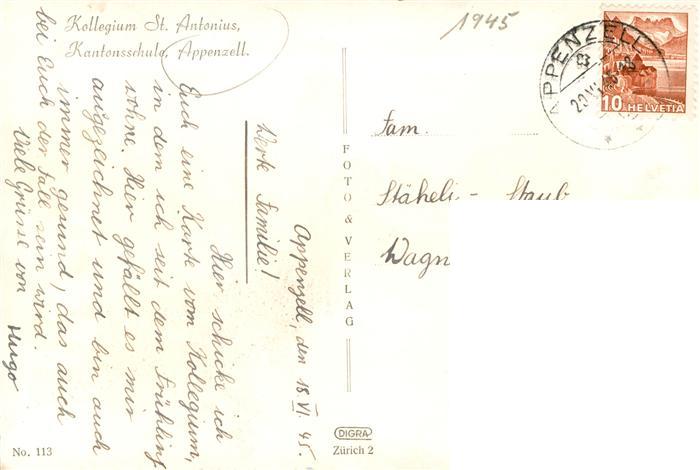 Kollegium St. Antonius,
Kantonsschule, Appenzell.
1945
Appenzell, den 18. VI. 45.
Werte Familie!
Hier schicke ich
Euch eine Karte vom Kollegium,
in dem ich seit dem Frühling
wohne. Hier gefällt es mir
ausgezeichnet und bin auch
immer gesund, das auch
bei Euch der Fall sein wird.
Viele Grüsse von
Hugo
FOTO & VERLAG
DIGRA
Zürich 2
No. 113
APPENZELL
10 HELVETIA
Fam.
Stäheli - Staub
Wagn